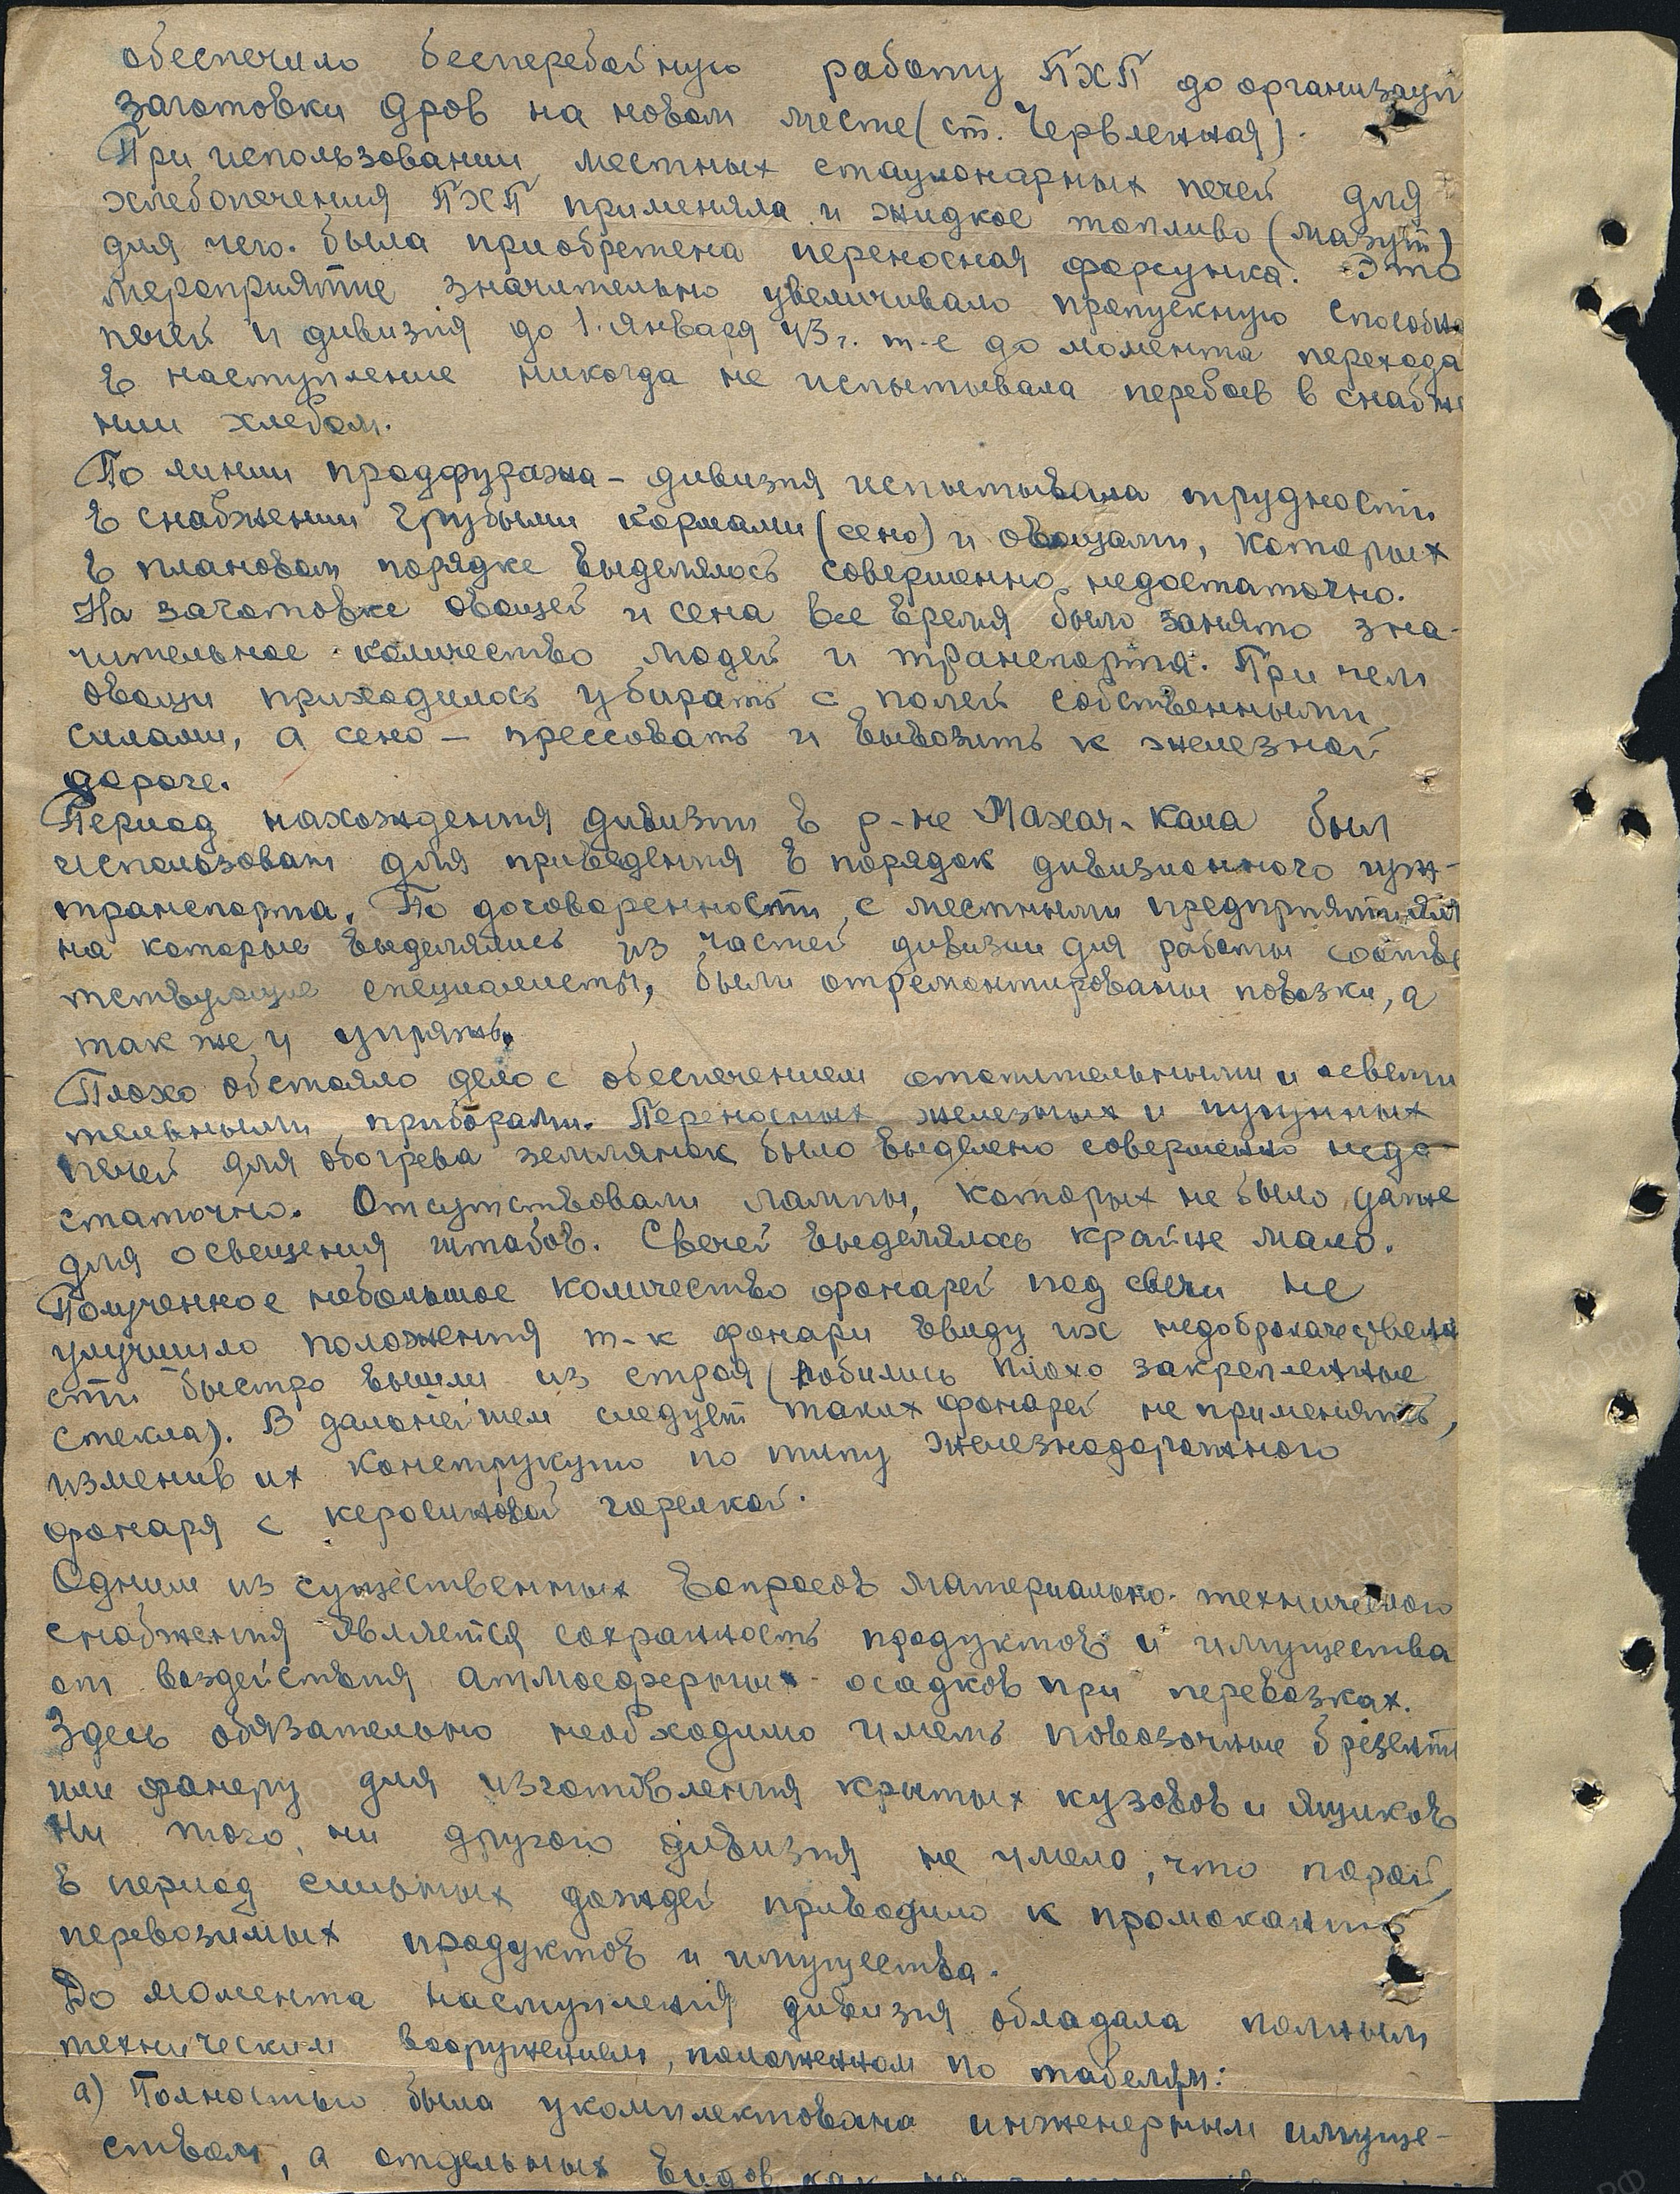 обеспечило бесперебойную работу ПХП до организаци
заготовки дров на новом месте (ст. Червленная).
При использовании местных стационарных печей для
хлебопечения ПХП применяла и жидкое топливо (мазут)
для чего была приобретена переносная форсунка. Это
мероприятие значительно увеличивало пропускную способно
печей и дивизия до 1. января 43 г. т-е до момента перехода
в наступление никогда не испытывала перебоев в снабже
нии хлебом.
По линии продфуража - дивизия испытывала трудности
в снабжении грубыми кормами (сено) и овощами, которых
в плановом порядке выделялось совершенно недостаточно.
На заготовке овощей и сена все время было занято зна-
чительное количество людей и транспорта. При чем
овощи приходилось убирать с полей собственными
силами, а сено - прессовать и вывозить к железной
дороге.
Период нахождения дивизии в р-не Махач-Кала был
использован для приведения в порядок дивизионного гуж-
транспорта. По договоренности с местными предприятиями
на которые выделялись из частей дивизии для работы соотве
тствующие специалисты, были отремонтированы повозки, а
так же и упряжь.
Плохо обстояло дело с обеспечением отопительными и освети
тельными приборами. Переносных железных и чугунных
печей для обогрева землянок было выделено совершенно недо-
статочно. Отсутствовали лампы, которых не было даже
для освещения штабов. Свечей выделялось крайне мало.
Полученное небольшое количество фонарей под свечи не
улучшило положения т-к фонари ввиду их недоброкачественно
сти быстро вышли из строя (побились плохо закрепленные
стекла). В дальнейшем следует таких фонарей не применять,
изменив их конструкцию по типу железнодорожного
фонаря с керосиновой горелкой.
Одним из существенных вопросов материально-технического
снабжения является сохранность продуктов и имущества
от воздействия атмосферных осадков при перевозках.
Здесь обязательно необходимо иметь повозочные брезенты
или фанеру для изготовления крытых кузовов и ящиков
Ни того, ни другого дивизия не имела, что порой
в период сильных дождей приводило к промоканию
перевозимых продуктов и имущества.
До момента наступления дивизия обладала полным
техническим вооружением, положенном по табелям:
а) Полностью была укомплектована инженерным имуще-
ством, а отдельных видов как